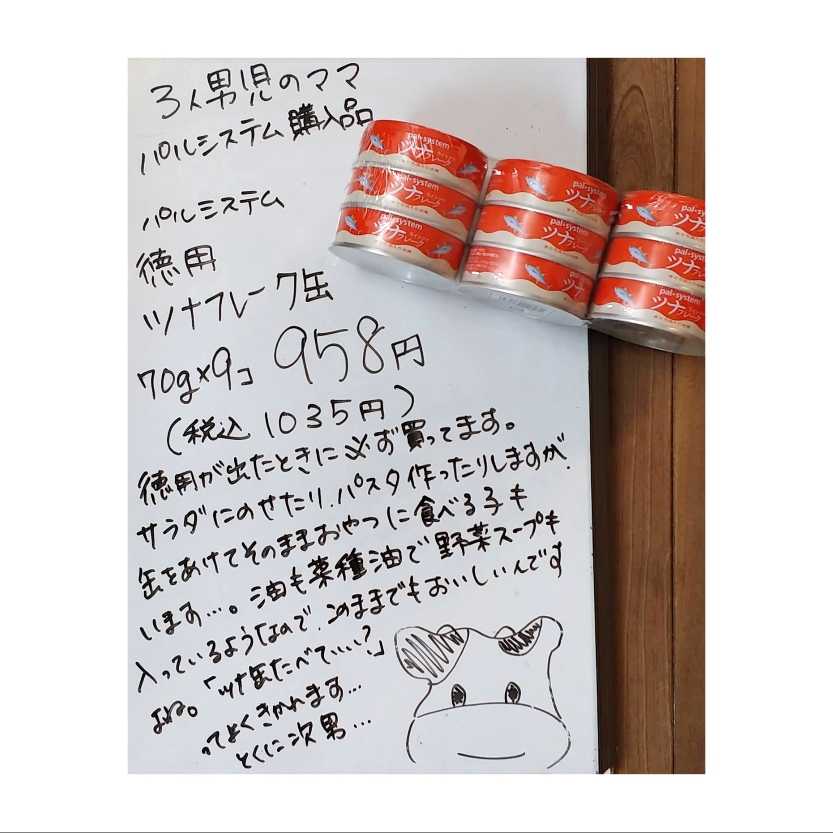 3人男児のママ
パルシステム購入品
パルシステム
徳用
ツナフレーク缶
70g×9コ 958円
(税込 1035円)
徳用が出たときに必ず買ってます。
サラダにのせたり、パスタ作ったりしますが、
缶をあけてそのままおやつに食べる子も
います…。油も菜種油で野菜スープも
入っているようなので、このままでもおいしいんです
よね。「ツナ缶たべていい?」
ってよくきかれます…
とくに次男…
pal*system
ツナフレーク
pal*system
ツナフレーク
pal*system
ツナフレーク
pal*system
ツナフレーク
pal*system
ツナフレーク
ツナ
pal*sy
ツナフレ
pal*system
ツナフレーク
pal*system
ツナフレーク